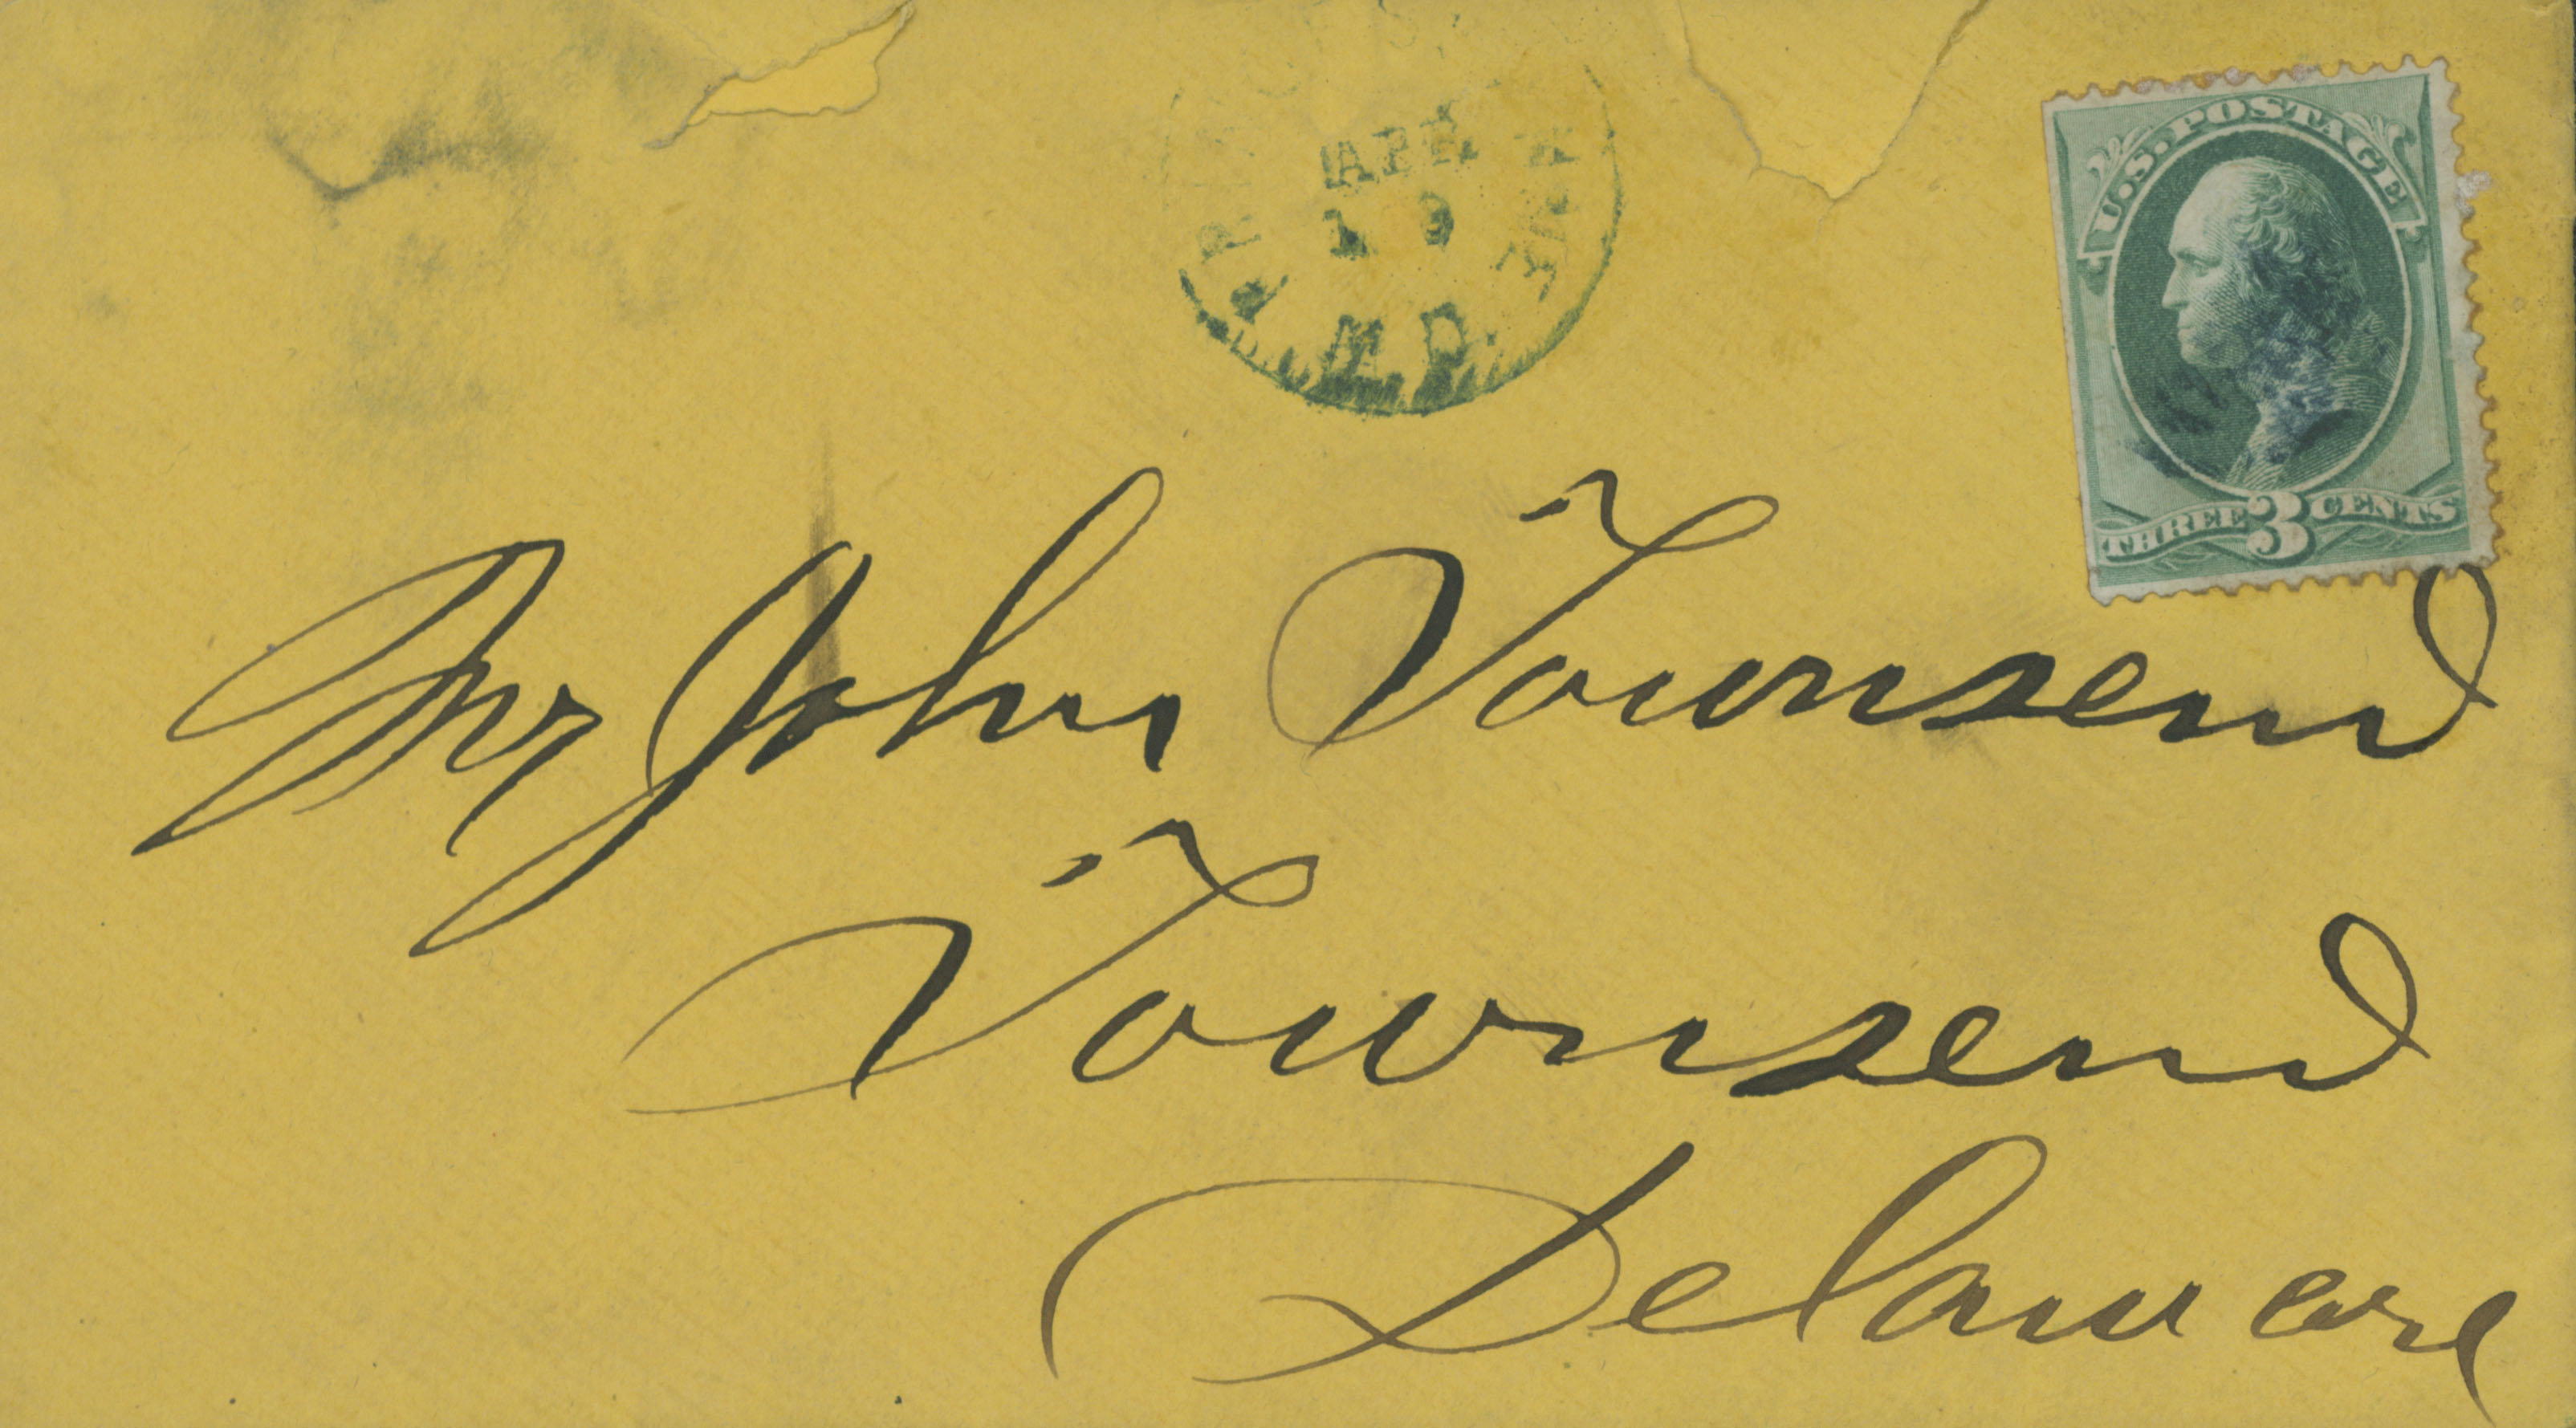 APR
19
MD.
U.S. POSTAGE
THREE 3 CENTS
Mr John Townsend
Townsend
Delaware